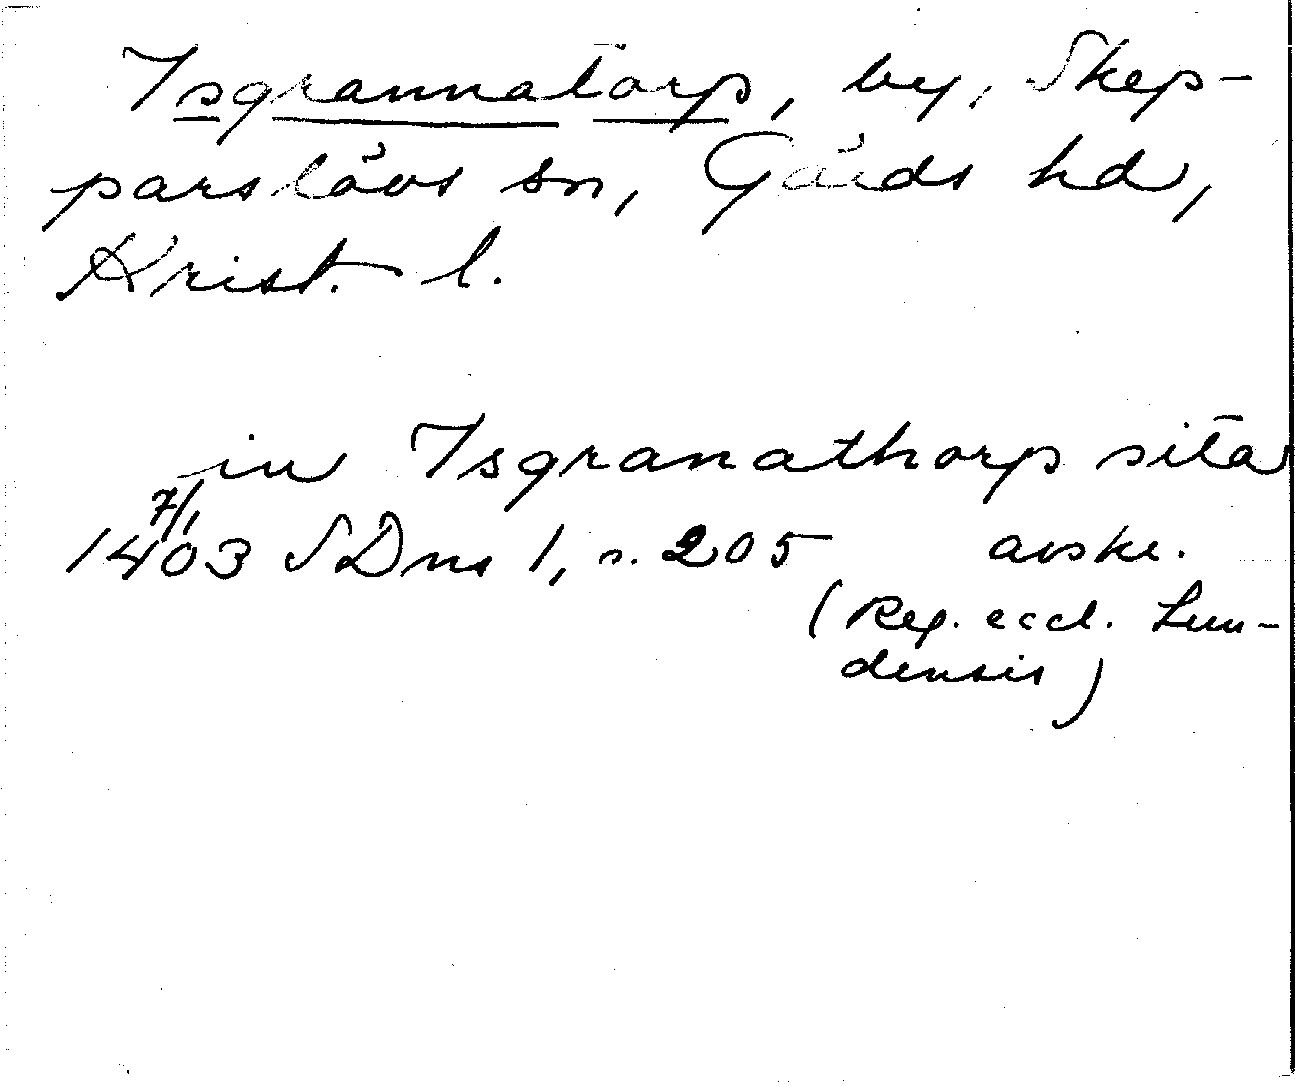 Isgrannatorp, by, Skep-
parslövs sn, Gärds hd,
Krist. l.
in Isgranathorp sita
7/1
1403 SDns 1, s. 205 avskr.
(Reg. eccl. Lun-
densis)